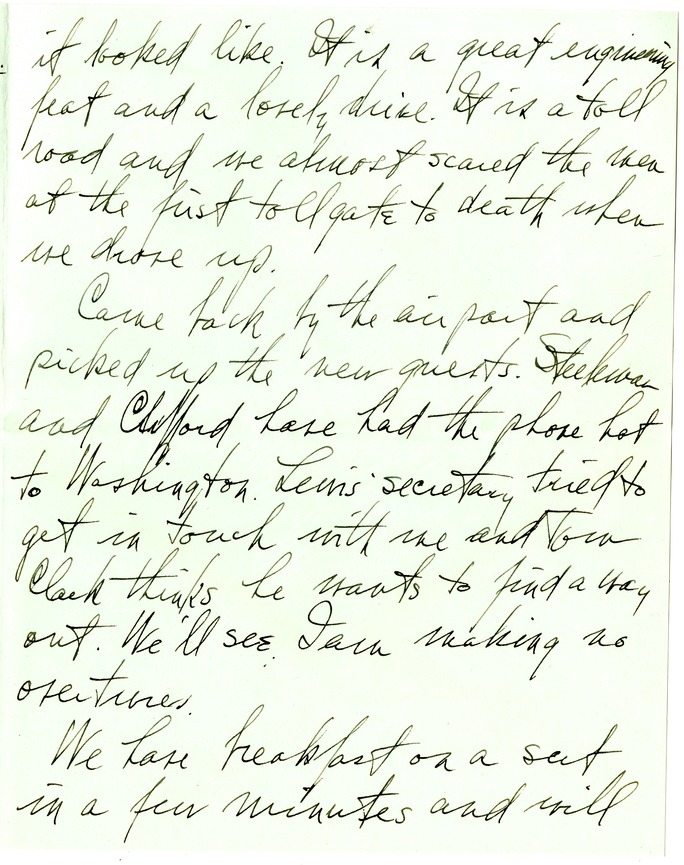 it looked like. It is a great engineering
feat and a lovely drive. It is a toll
road and we almost scared the men
at the first tollgate to death when
we drove up.
Came back by the airport and
picked up the new guests. Steelman
and Clifford have had the phone hot
to Washington. Lewis' secretary tried to
get in touch with me and Tom
Clark thinks he wants to find a way
out. We'll see. I am making no
overtures.
We have breakfast on a
in a few minutes and will